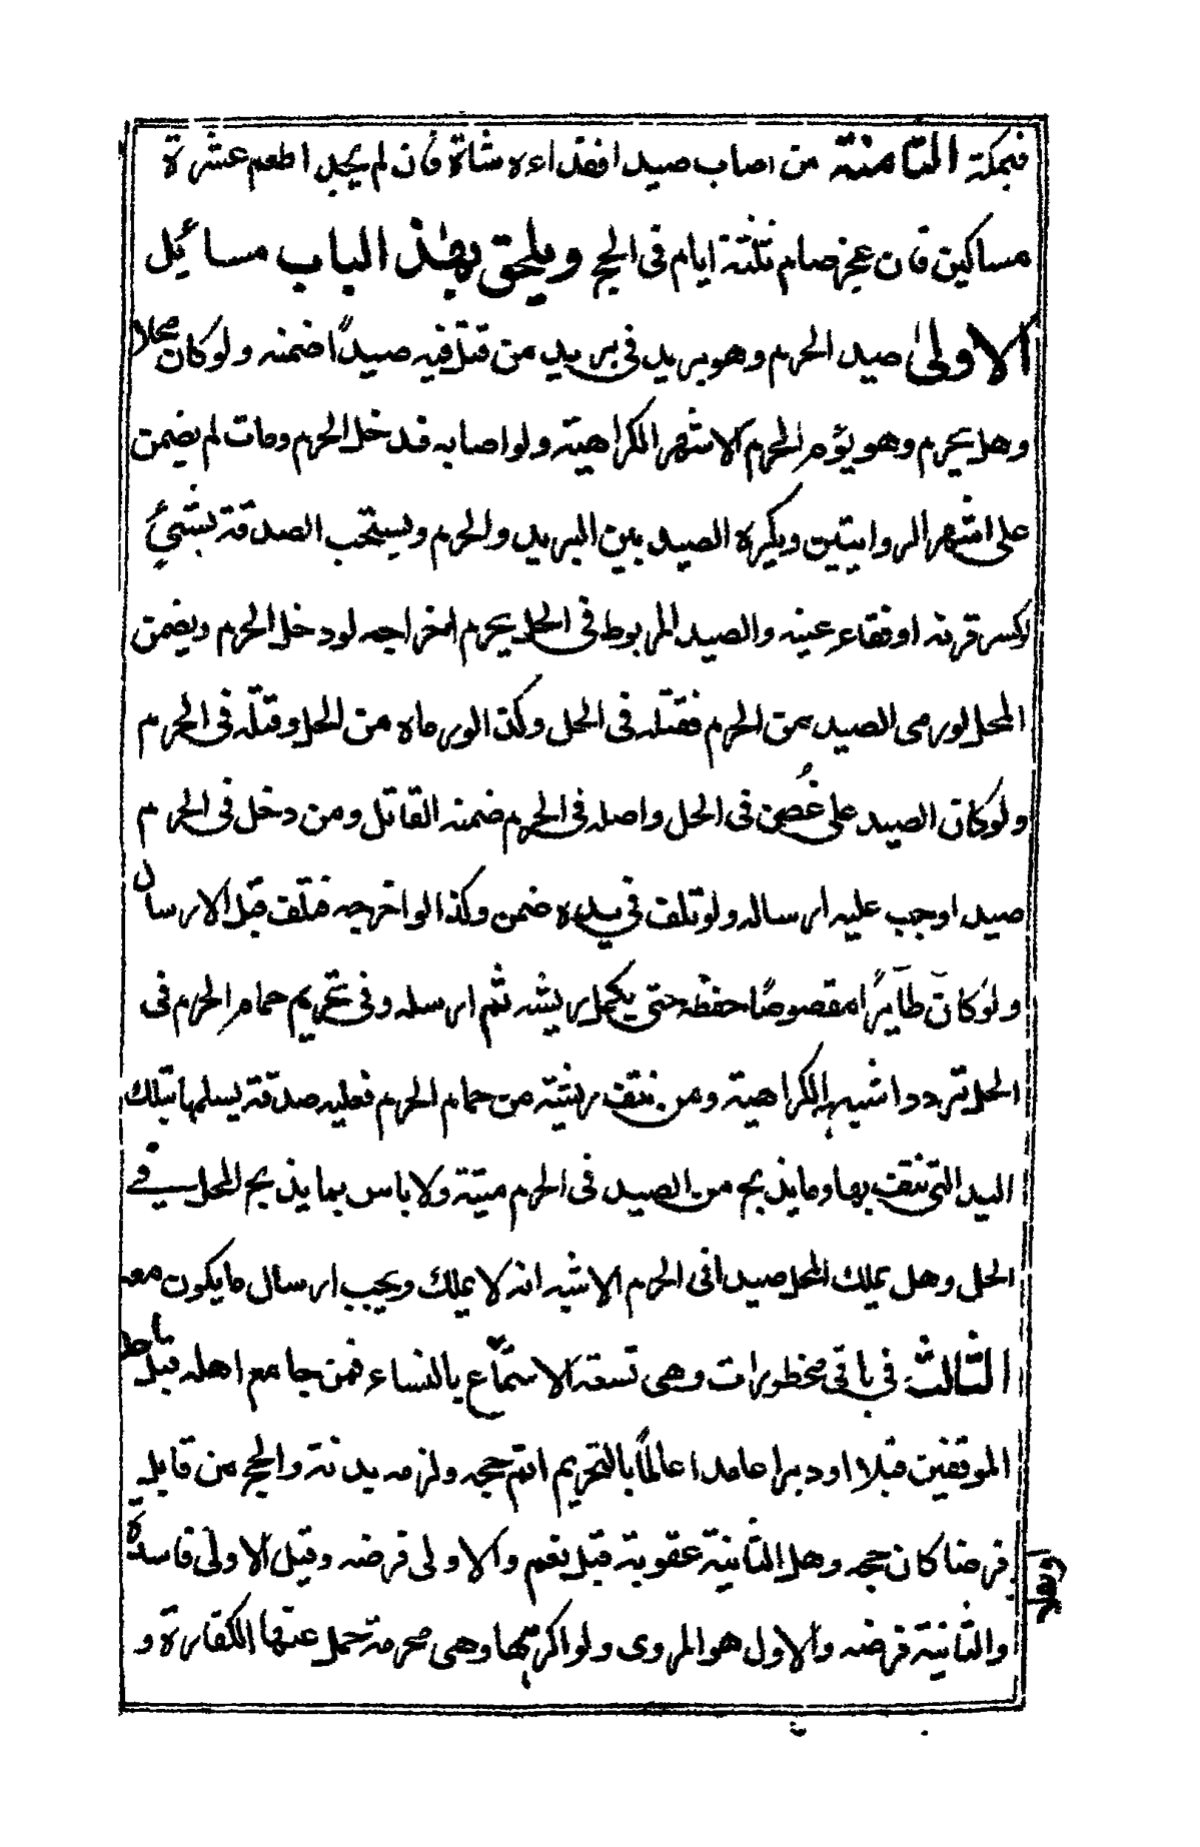 فبمكة الثامنة من اصاب صيدا ففداءه شاة فان لم يجد اطعم عشرة
مساكين فان عجز صام ثلثة ايام فى الحج ويلحق بهذا الباب مسائل
الاولىٰ صيد الحرم وهو بريد فى بريد من قتل فيه صيدًا ضمنه ولو كان محلا
وهل يحرم وهو يؤم الحرم الاشهر الكراهية ولو اصابه فدخل الحرم ومات لم يضمن
على اشهر الروايتين ويكره الصيد بين البريد والحرم ويستحب الصدقة بشئ
لكسر قرنه او فقاء عينه والصيد المربوط فى الحل يحرم اخراجه لو دخل الحرم ويضمن
المحل لو رمى الصيد من الحرم فقتله فى الحل وكذا لو رماه من الحل وقتله فى الحرم
ولو كان الصيد على غُصن فى الحل واصله فى الحرم ضمنه القاتل ومن دخل فى الحرم
صيدا وجب عليه ارساله ولو تلف فى يده ضمن وكذا لو اخرجه فتلف قبل الارسال
ولو كان طائرًا مقصوصًا حفظه حتى يكمل ريشه ثم ارسله وفى تحريم حمام الحرم فى
الحل تردد اشبهه الكراهية ومن نتف ريشة من حمام الحرم فعليه صدقة يسلمها بتلك
اليد التى نتف بها وما يذبح من الصيد فى الحرم ميتة ولا باس بما يذبح المحل فى
الحل وهل يملك المحل صيدا فى الحرم الاشبه انه لا يملك ويجب ارسال ما يكون معه
الثالث فى باقى محظورات وهى تسعة الاستمتاع بالنساء فمن جامع اهله قبل احد
الموقفين قبلا او دبرا عامدا عالمًا بالتحريم اتم حجه ولزمه بدنة والحج من قابل
فرضا كان حجه وهل الثانية عقوبة قيل نعم والاولى فرضه وقيل الاولى فاسدة
والثانية فرضه والاول هو المروى ولو اكرهها وهى محرمة حمل عنها الكفارة و